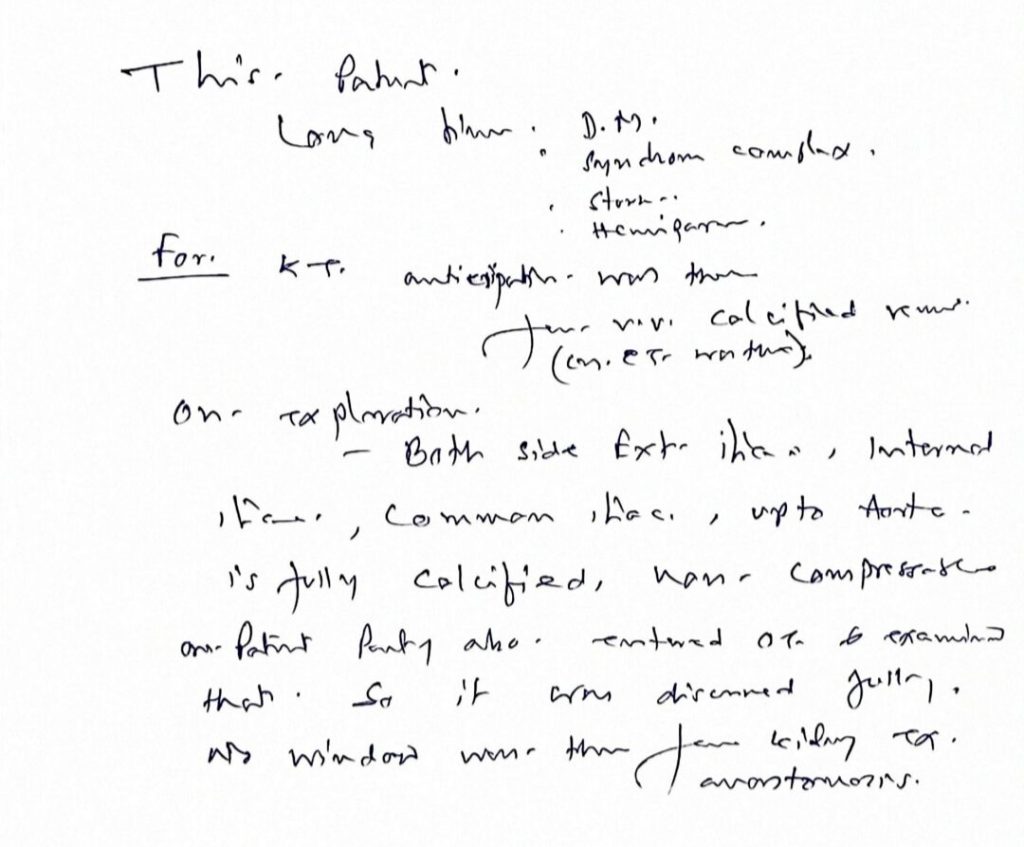 This. Patient.
Long time. D.M.
Syndrom complex.
Stroke..
Hemipares.
For. K T. anticipation. was there
for calcified
(CT was there).
On. exploration.
- Both side Ext. iliac, Internal
iliac, Common iliac, upto Aorta.
is fully calcified, non. compressible
one Patient Party also. entered OT to examined
that. So it was discussed fully.
No window was there for kidney Tx.
anastomosis.